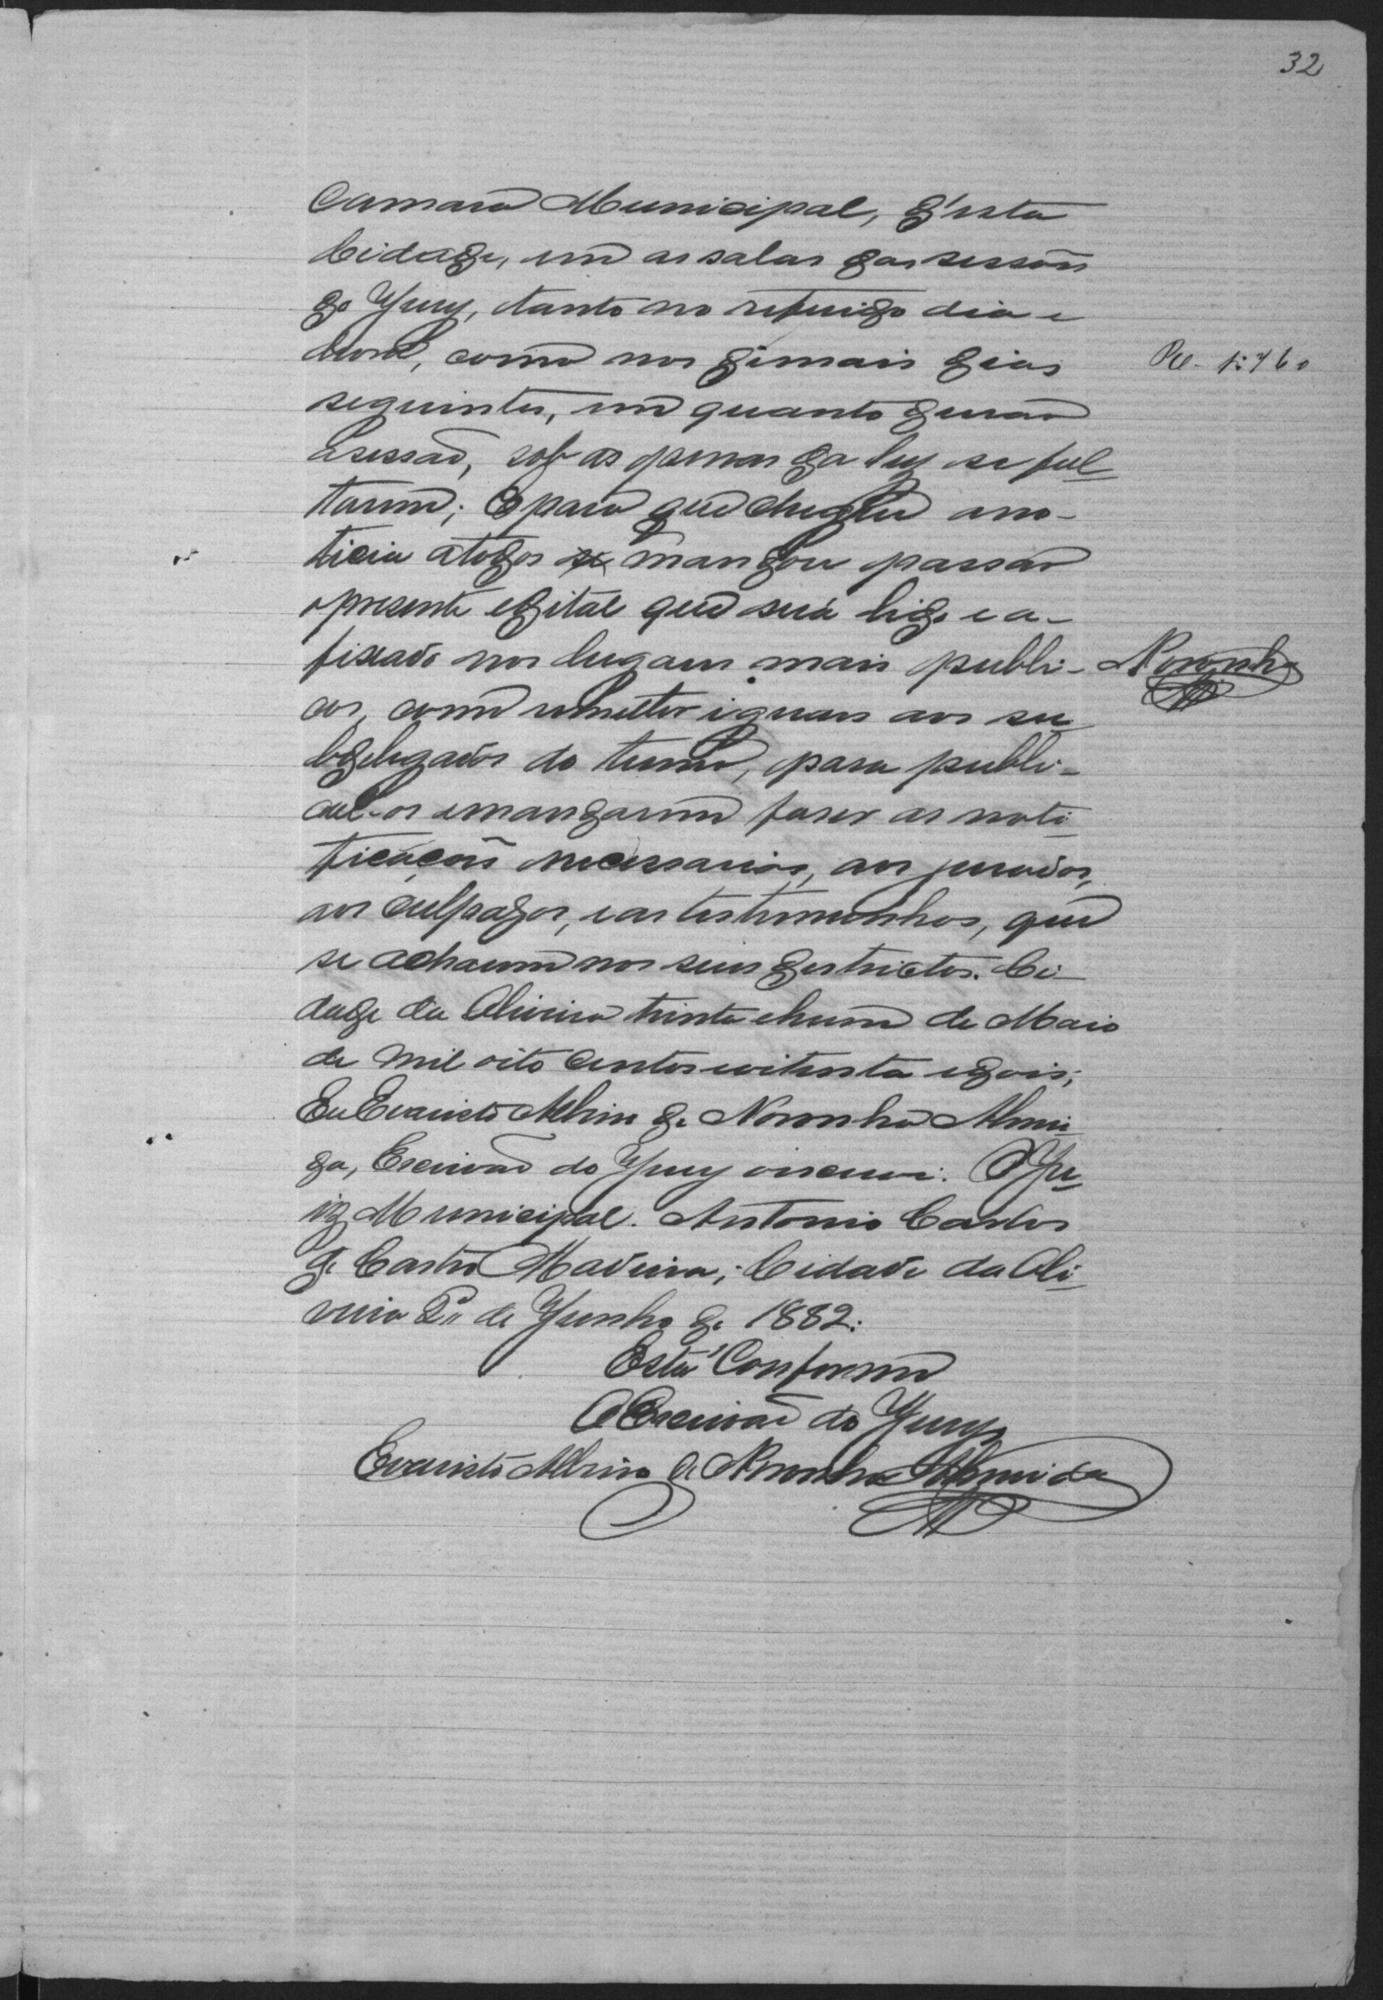 32
Camara Municipal, d'esta
Cidade, em as salas das sessoẽs
do Jury, tanto no referido dia e
hora, como nos demais dias
seguintes, em quanto durar
a sessaõ, sob as penas da ley se fal-
tarem; E para que chegue a no-
ticia a todos mandou passar
o presente edital que será lido e a-
fixado nos lugares mais publi-
cos, como remetter iguaes aos su
bdelegados do termo, para publi-
cal-os e mandarem faser as noti-
ficaçoẽs necessarias, aos jurados,
aos culpados, e as testemunhas, que
se acharem nos seus destrictos. Ci-
dade da Oliveira trinta e hum de Maio
de mil oito centos e oitenta e dois;
Eu Evaristo Albino de Noronha Almei
da, Escrivaõ do Jury o escrevi. O Ju-
iz Municipal. Antonio Carlos
de Castro Madeira; Cidade da Oli-
veira 2 de Junho de 1882.
Está Conforme
O Escrivaõ do Jury
Evaristo Albino de Noronha Almeida
Noronha